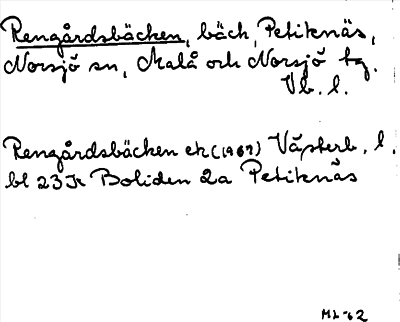 Rengårdsbäcken, bäck, Petiknäs,
Norsjö sn, Malå och Norsjö tg.
Vb. l.
Rengårdsbäcken ek (1967) Västerb. l.
bl 23 K Boliden 2a Petiknäs